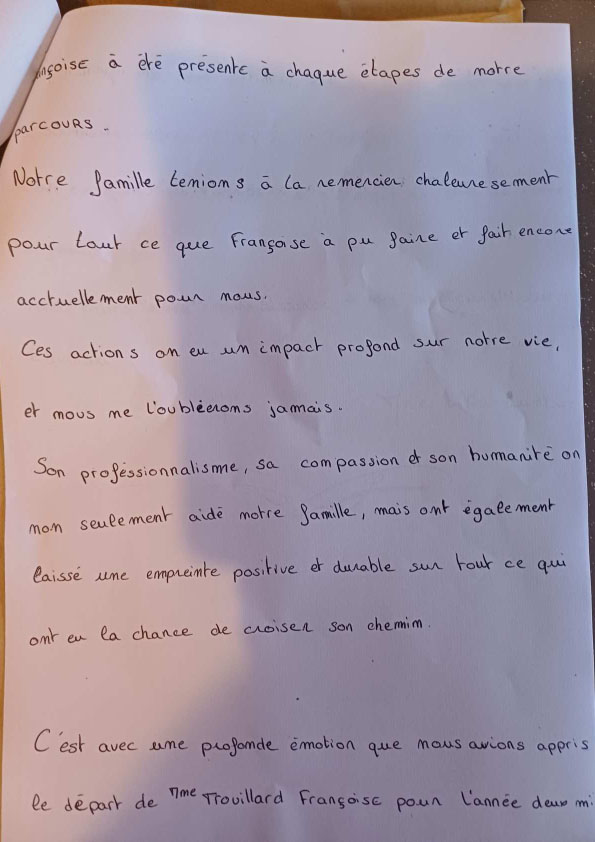 nçoise à été présente à chaque étapes de notre
parcours.
Notre famille tenions à la remercier chaleuresement
pour tout ce que Françoise à pu faire et fait encore
acctuellement pour nous.
Ces actions on eu un impact profond sur notre vie,
et nous ne l'oublierons jamais.
Son proféssionnalisme, sa compassion et son humanité on
non seulement aidé notre famille, mais ont également
laissé une empreinte positive et durable sur tout ce qui
ont eu la chance de croiser son chemin.
C'est avec une profonde émotion que nous avions appris
le départ de Mme Trouillard Françoise pour l'année deux mi